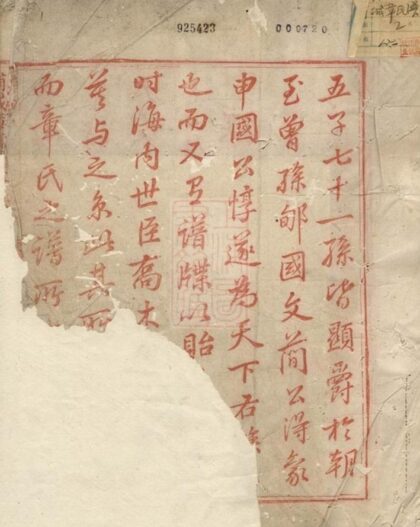 925423
000720
五子七十一孫皆顯爵於朝
至曾孫郇國文簡公得象
申國公惇遂為天下右
也而又有譜牒以貽
时海内世臣喬木
莫与之京此其所
而章氏之譜所